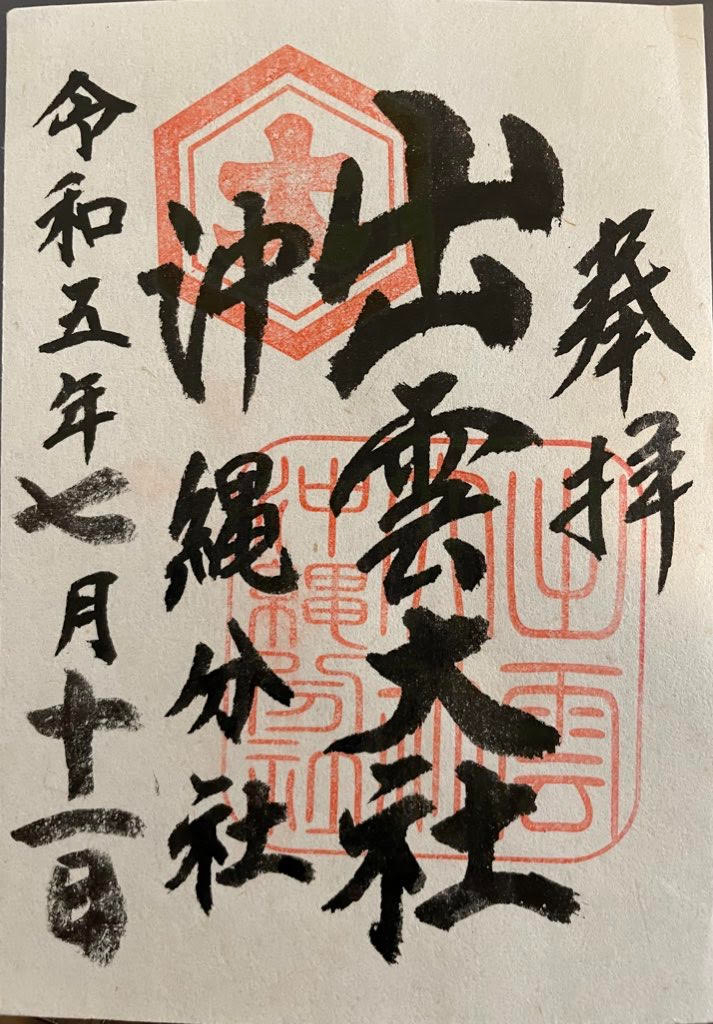 奉拝
出雲大社
沖縄分社
令和五年七月十一日
大
出雲
大社
沖縄分社